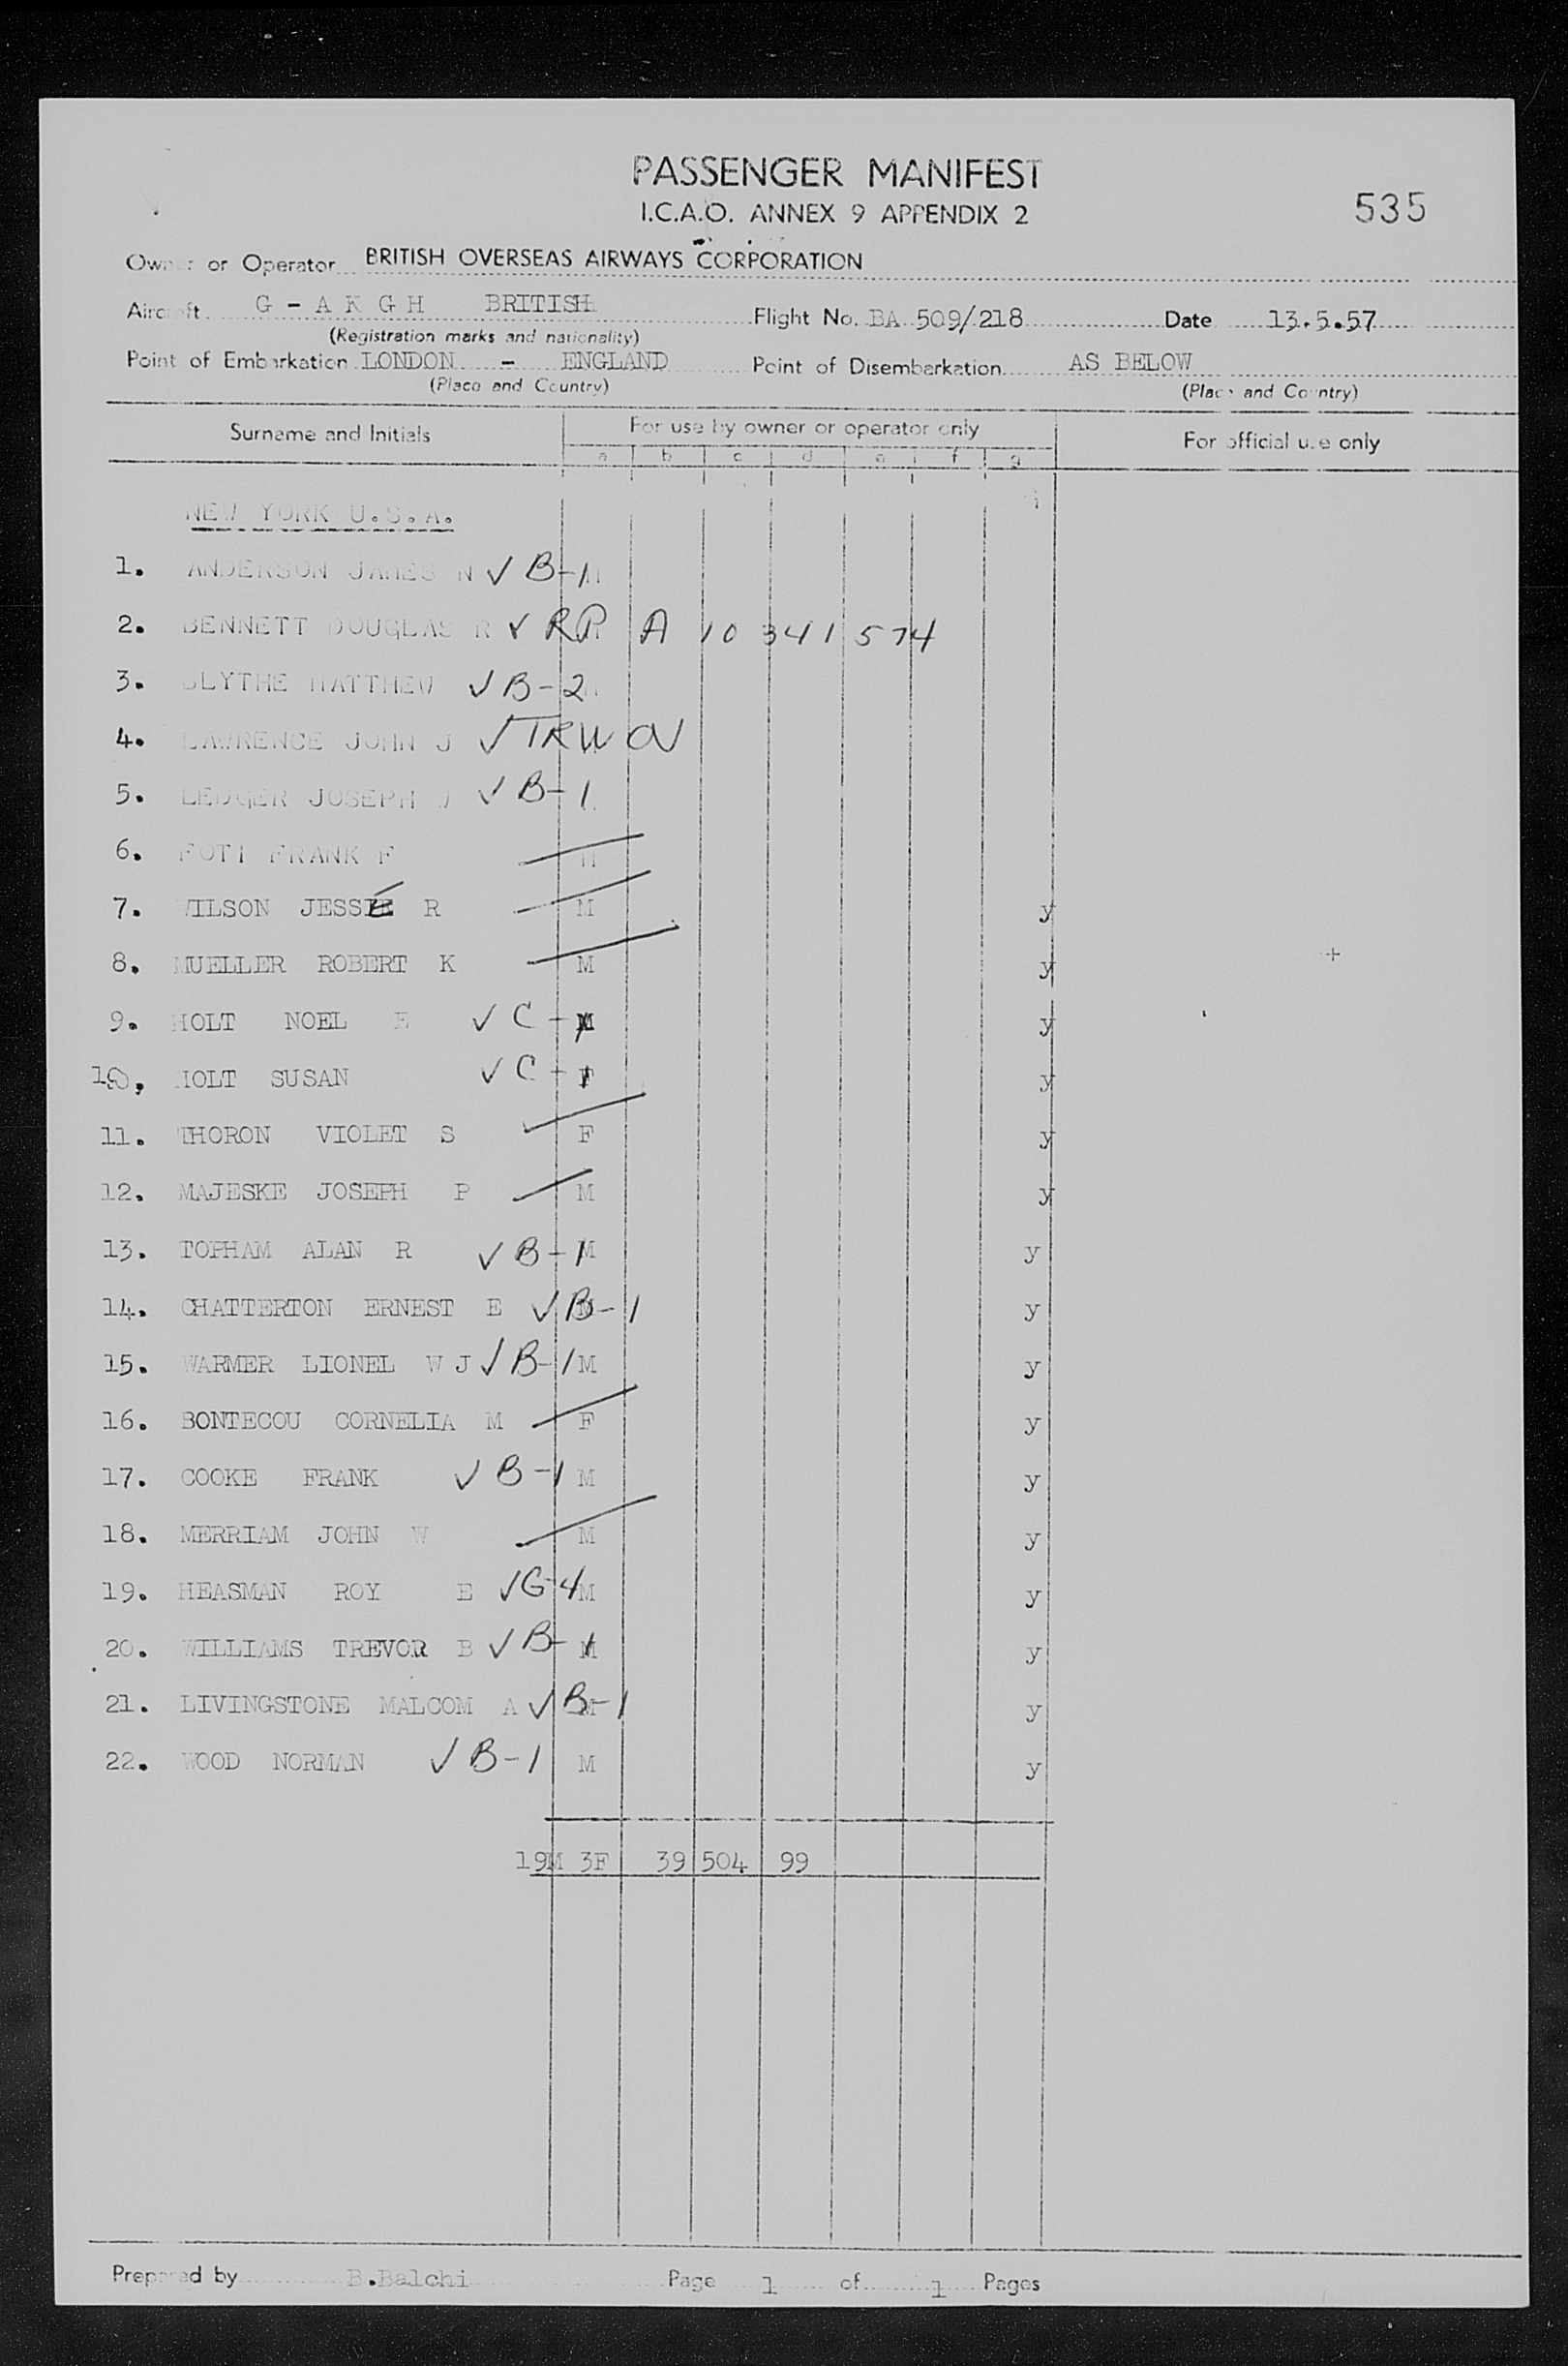 PASSENGER MANIFEST
I.C.A.O. ANNEX 9 APPENDIX 2
535
Owner or Operator BRITISH OVERSEAS AIRWAYS CORPORATION
Aircraft G - A K G H BRITISH Flight No. BA 509/218 Date 13.5.57
(Registration marks and nationality)
Point of Embarkation LONDON - ENGLAND Point of Disembarkation AS BELOW
(Place and Country) (Place and Country)
Surname and Initials For use by owner or operator only For official use only
a b c d e f g
NEW YORK U.S.A.
1. ANDERSON JAMES N ✓ B-1
2. BENNETT DOUGLAS R ✓ RP A 10 341 574
3. BLYTHE MATTHEW ✓ B-2
4. LAWRENCE JOHN J ✓ TRWOV
5. LEDGER JOSEPH ✓ B-1
6. FOTI FRANK F M
7. WILSON JESSE R M y
8. MUELLER ROBERT K M y
9. HOLT NOEL E ✓ C-1 M y
10. HOLT SUSAN ✓ C-1 F y
11. THORON VIOLET S F y
12. MAJESKE JOSEPH P M y
13. TOPHAM ALAN R ✓ B-1 M y
14. CHATTERTON ERNEST E ✓ B-1 M y
15. WARMER LIONEL W J ✓ B-1 M y
16. BONTECOU CORNELIA M F y
17. COOKE FRANK ✓ B-1 M y
18. MERRIAM JOHN W M y
19. HEASMAN ROY E ✓ G-4 M y
20. WILLIAMS TREVOR B ✓ B-1 M y
21. LIVINGSTONE MALCOM A ✓ B-1 M y
22. WOOD NORMAN ✓ B-1 M y
19M 3F 39 504 99
Prepared by B.Balchi Page 1 of 1 Pages